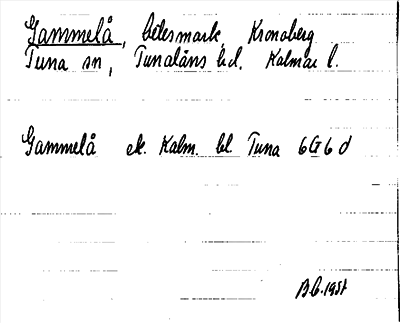 Gammelå, bölesmark, Kronoberg
Tuna sn, Tunaläns hd. Kalmar l.
Gammelå ek. Kalm. bl. Tuna 6G6d
B.C. 1957